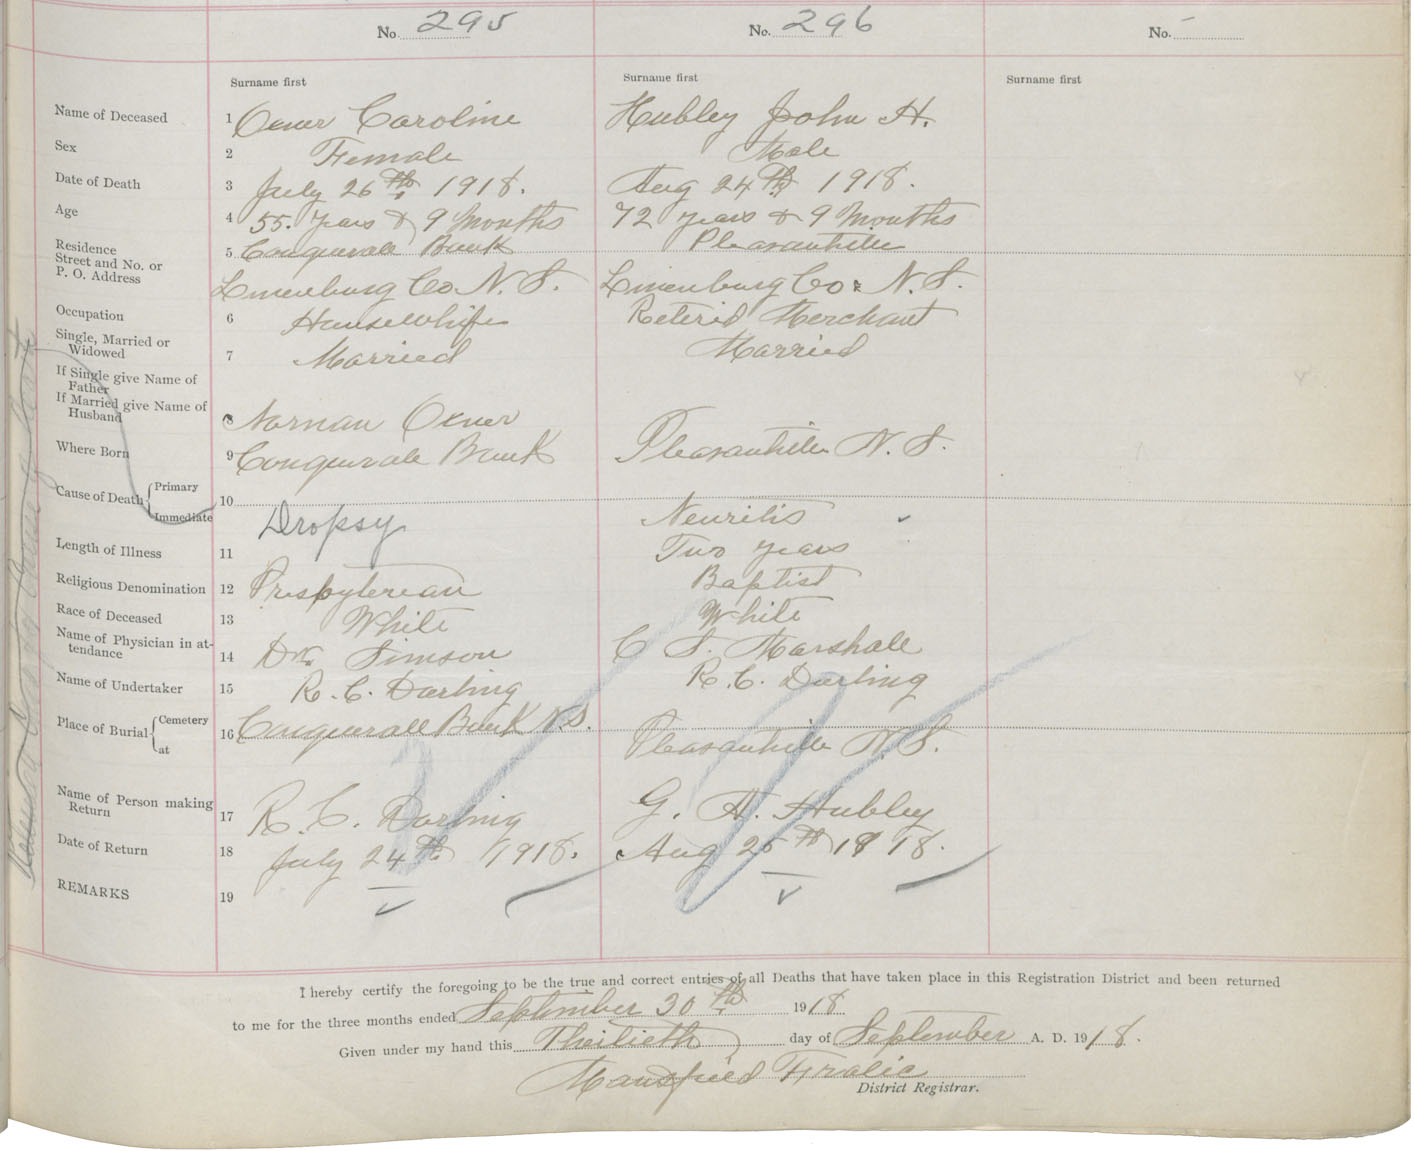 No. 295 No. 296 No. -
Surname first Surname first Surname first
Name of Deceased 1 Oxner Caroline Hubley John H.
Sex 2 Female Male
Date of Death 3 July 26th 1918. Aug 24th 1918.
Age 4 55. years & 9 Months 72 years & 9 Months
Residence
Street and No. or
P. O. Address
5 Conquerale Bank Pleasantville
Lunenburg Co N. S. Lunenburg Co. N. S.
Occupation 6 Housewhife Reterid Merchant
Single, Married or
Widowed
7 Married Married
If Single give Name of
Father
If Married give Name of
Husband
8 Norman Oxner
Where Born 9 Conquerale Bank Pleasantville N. S.
Cause of Death { Primary
Immediate
10 Dropsy Neuritis
Length of Illness 11 Two years
Religious Denomination 12 Presbyterean Baptist
Race of Deceased 13 White White
Name of Physician in at-
tendance
14 Dr. Simson C S. Marshall
Name of Undertaker 15 R. C. Darling R. C. Darling
Place of Burial { Cemetery
at
16 Conquerall Bank N.S. Pleasantville N. S.
Name of Person making
Return
17 R. C. Darling G. H. Hubley
Date of Return 18 July 24th 1918. Aug 25th 1918.
REMARKS 19
I hereby certify the foregoing to be the true and correct entries of all Deaths that have taken place in this Registration District and been returned
to me for the three months ended September 30th 1918
Given under my hand this Theitieth day of September A. D. 1918.
Mansfield Fralic
District Registrar.